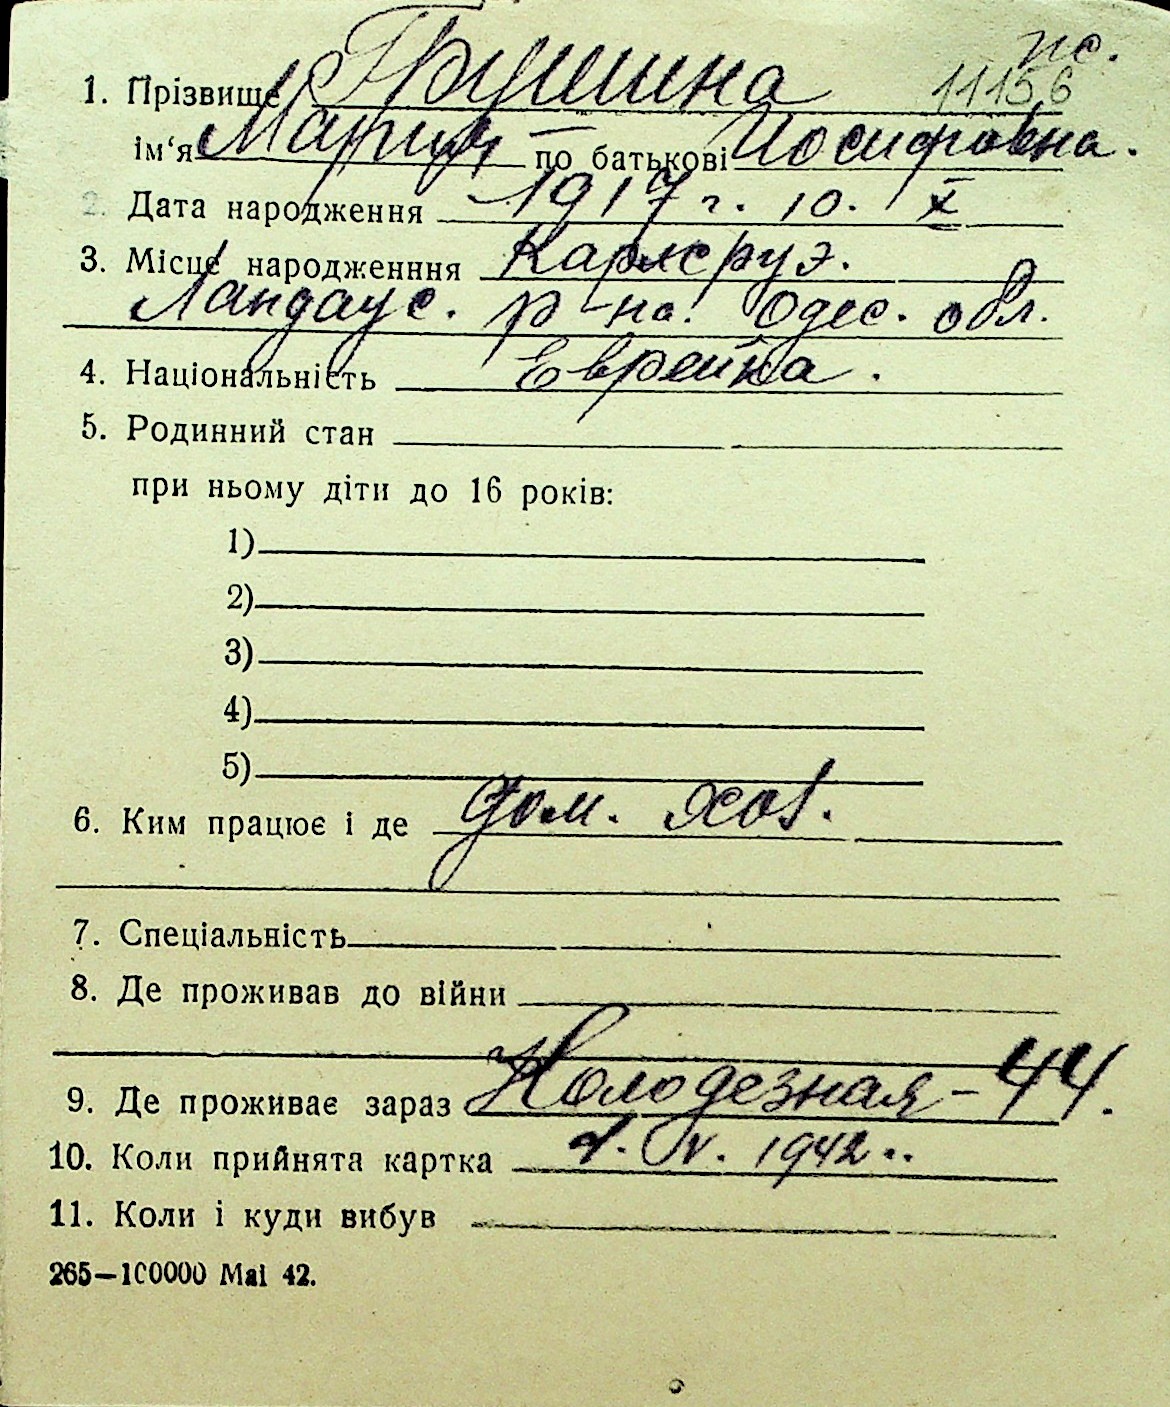 пс.
1. Прізвище Грушина 11156
ім‘я Мария по батькові Иосифовна.
2. Дата народження 1917 г. 10. X
3. Місце народженння Карлсруэ.
Ландаус. р-на. Одес. обл.
4. Національність Еврейка.
5. Родинний стан
при ньому діти до 16 років:
1)
2)
3)
4)
5)
6. Ким працює і де дом. хоз.
7. Спеціальність
8. Де проживав до війни
9. Де проживає зараз Колодезная - 44.
10. Коли прийнята картка V. 1942
11. Коли і куди вибув
265—100000 Mai 42.